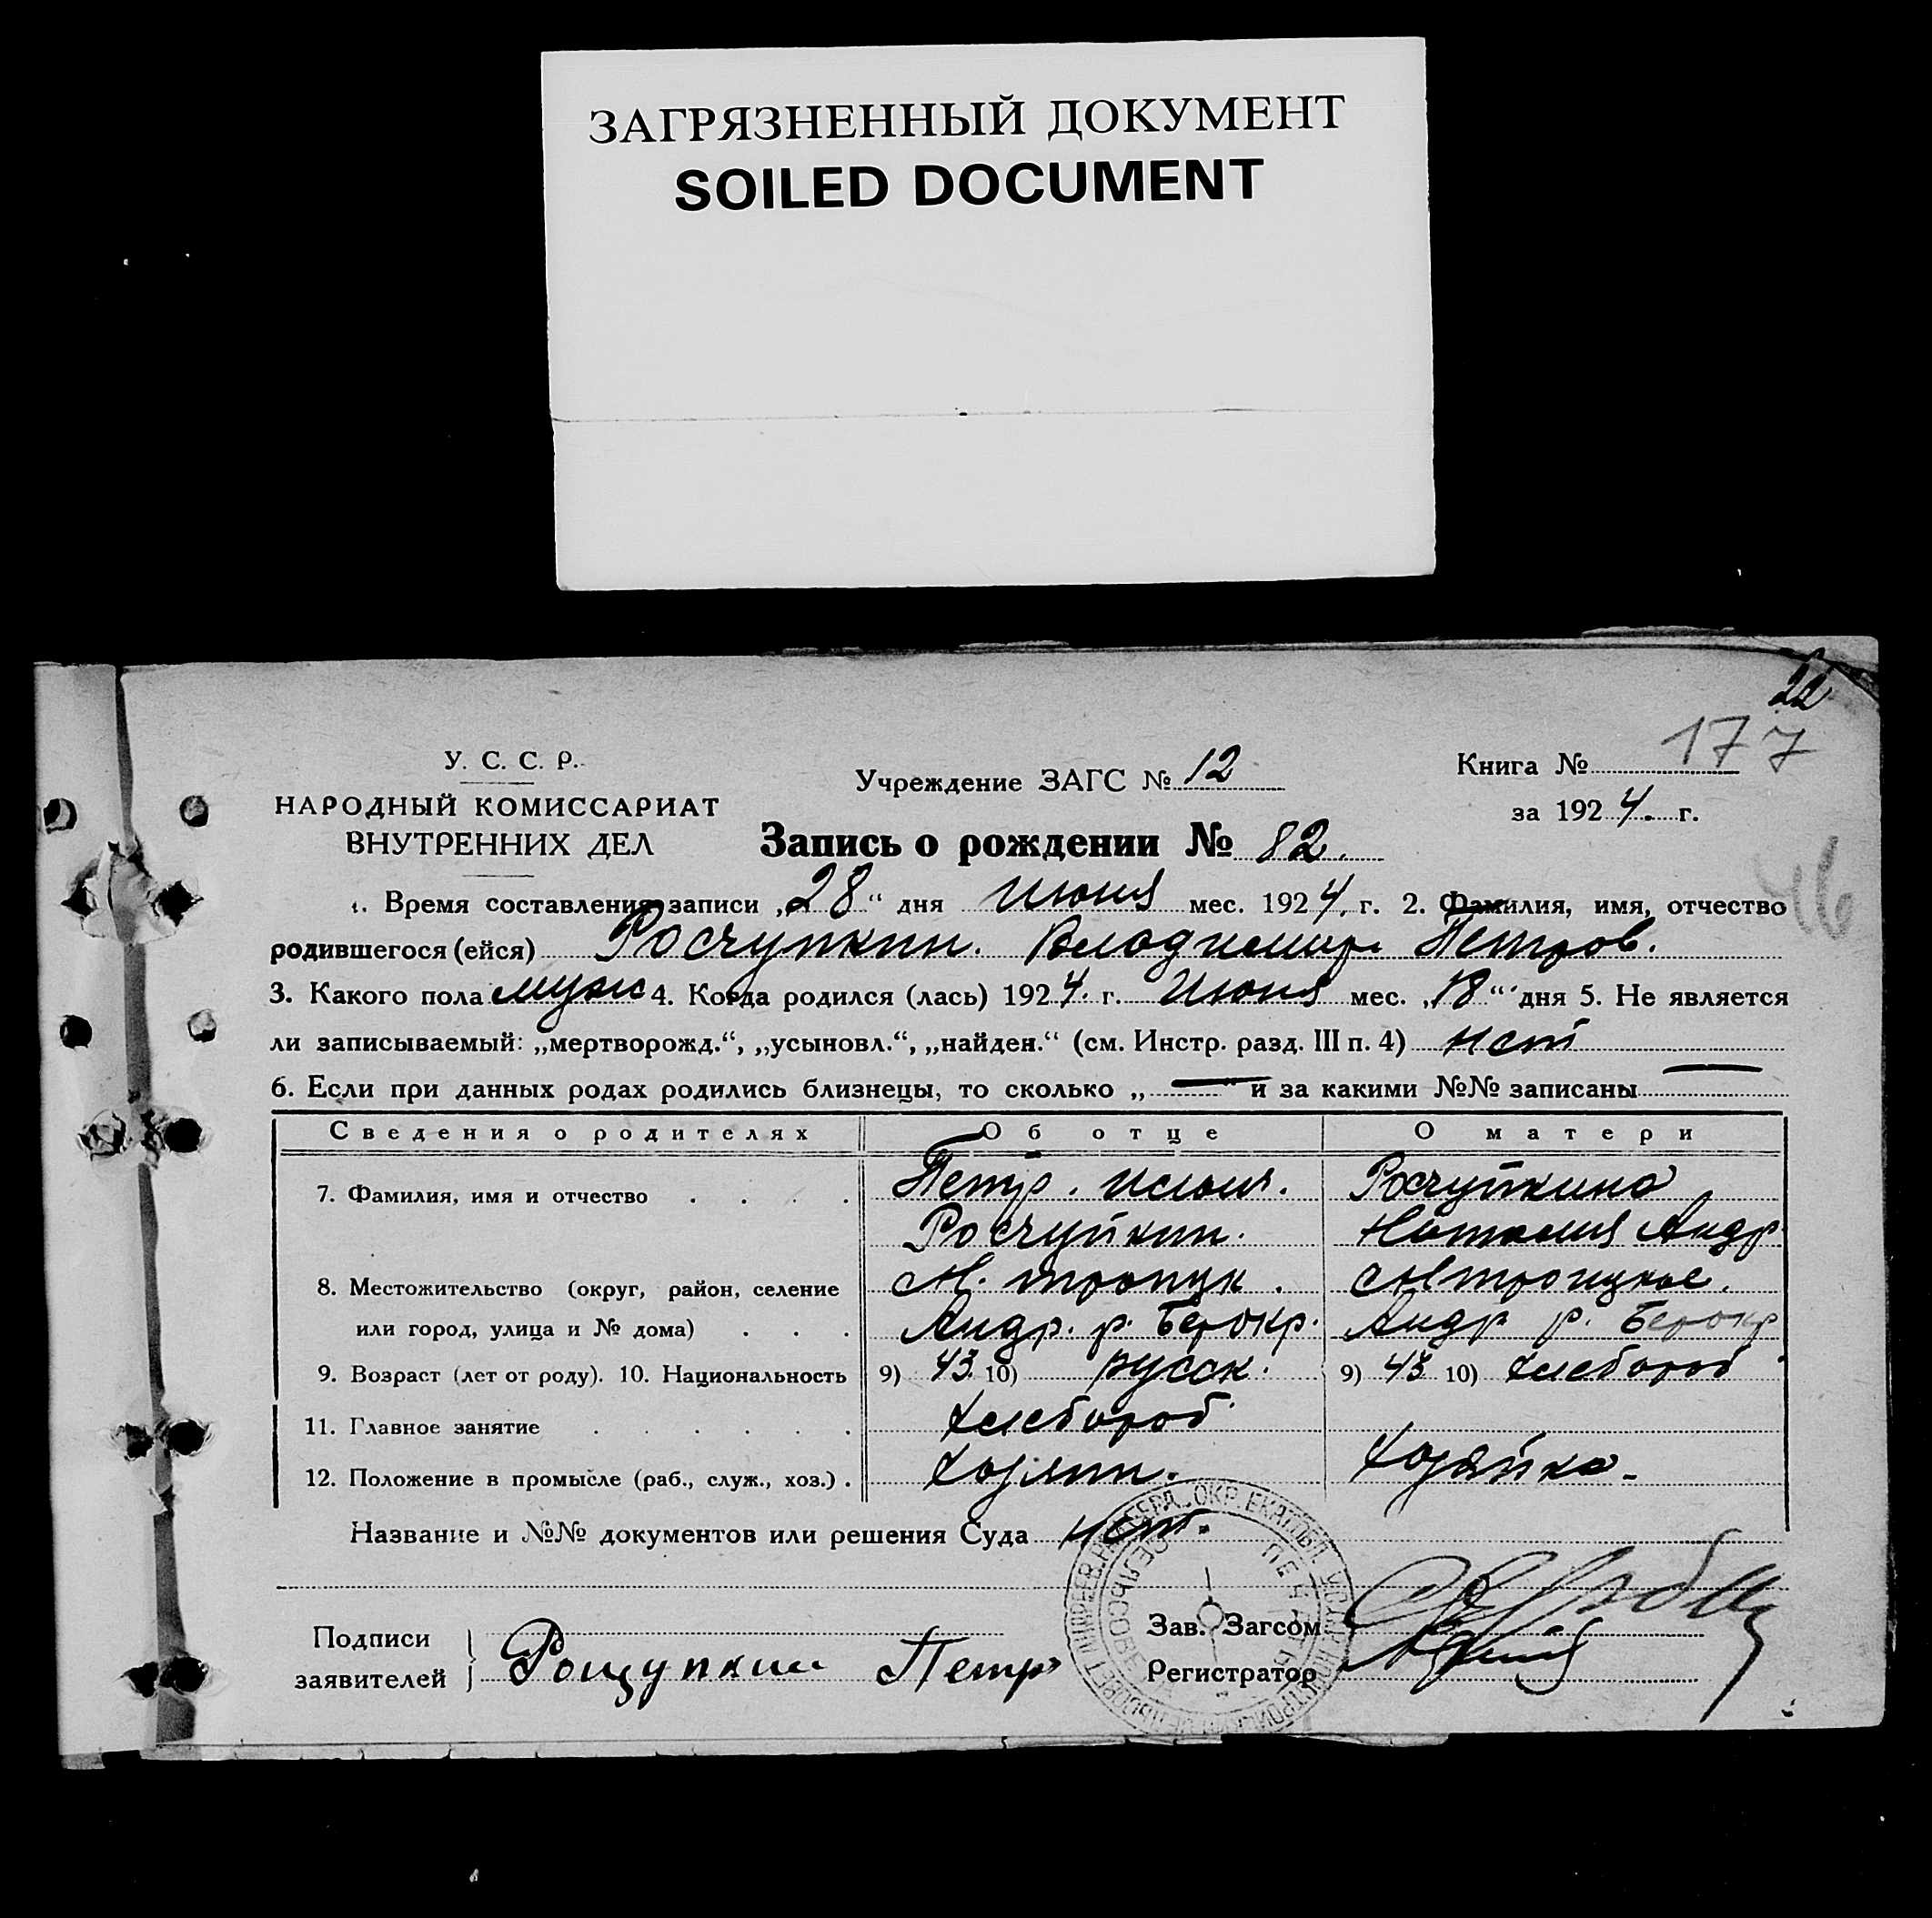 ЗАГРЯЗНЕННЫЙ ДОКУМЕНТ
SOILED DOCUMENT
22
177
У. С. С. Р.
НАРОДНЫЙ КОМИССАРИАТ
ВНУТРЕННИХ ДЕЛ
Учреждение ЗАГС № 12
Книга №
за 1924. г.
Запись о рождении № 82.
46
1. Время составления записи „28“ дня Июня мес. 1924. г. 2. Фамилия, имя, отчество
родившегося (ейся) Росчупкин. Владимир Петров.
3. Какого пола муж 4. Когда родился (лась) 1924. г. Июня мес. „18“ дня 5. Не является
ли записываемый: „мертворожд.“, „усыновл.“, „найден.“ (см. Инстр. разд. III п. 4) нет
6. Если при данных родах родились близнецы, то сколько „ — “ и за какими №№ записаны —
Сведения о родителях Об отце О матери
7. Фамилия, имя и отчество Петр. Росчупкина
Росчупкин. Наталия Андр
8. Местожительство (округ, район, селение
или город, улица и № дома) Андр. р. Берокр. Андр р. Берокр
9. Возраст (лет от роду). 10. Национальность 9) 43. 10) русск. 9) 43 10) хлебороб
11. Главное занятие хлебороб
12. Положение в промысле (раб., служ., хоз.) хозяин. хозяйка
Название и №№ документов или решения Суда нет.
Подписи
заявителей Рощупкин Петр
Зав. Загсом
Регистратор
ПЕЧАТЬ